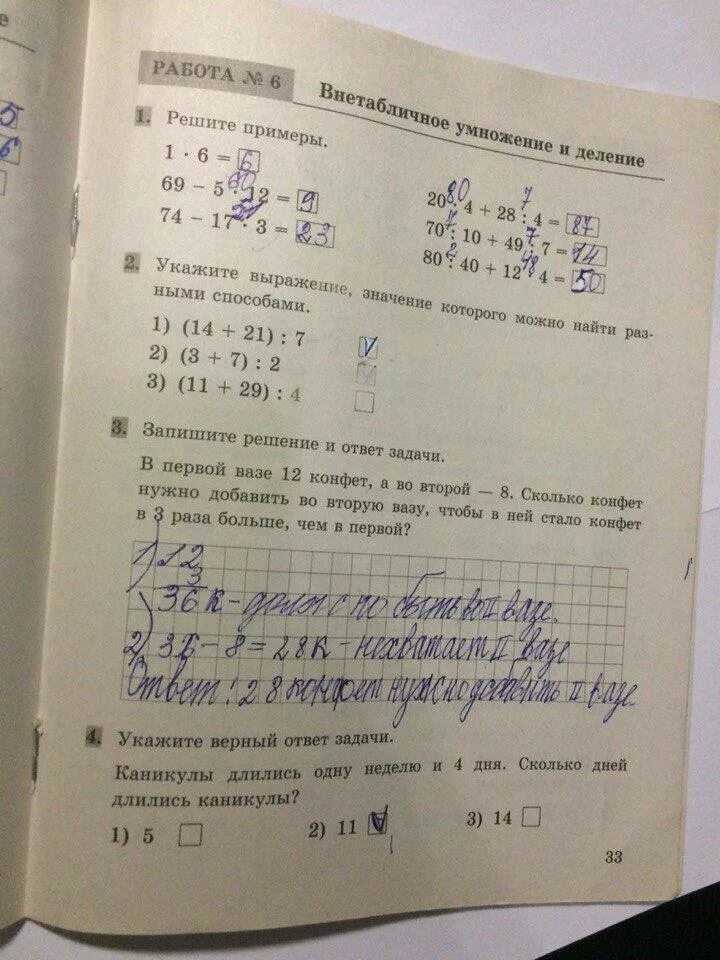 е
5
6
РАБОТА № 6
Внетабличное умножение и деление
1. Решите примеры.
1 · 6 = 6
60
69 − 5 · 12 = 9
51
74 − 17 · 3 = 23
80 7
20 · 4 + 28 : 4 = 87
7 7
70 : 10 + 49 : 7 = 14
2 48
80 : 40 + 12 · 4 = 50
2. Укажите выражение, значение которого можно найти раз-
ными способами.
1) (14 + 21) : 7 V
2) (3 + 7) : 2 V
3) (11 + 29) : 4
3. Запишите решение и ответ задачи.
В первой вазе 12 конфет, а во второй — 8. Сколько конфет
нужно добавить во вторую вазу, чтобы в ней стало конфет
в 3 раза больше, чем в первой?
1) 12
3
36 к - должно быть во II вазе.
2) 36 - 8 = 28 к - нехватает II вазе
Ответ: 28 конфет нужно добавить II вазе.
4. Укажите верный ответ задачи.
Каникулы длились одну неделю и 4 дня. Сколько дней
длились каникулы?
1) 5 2) 11 V 3) 14
33